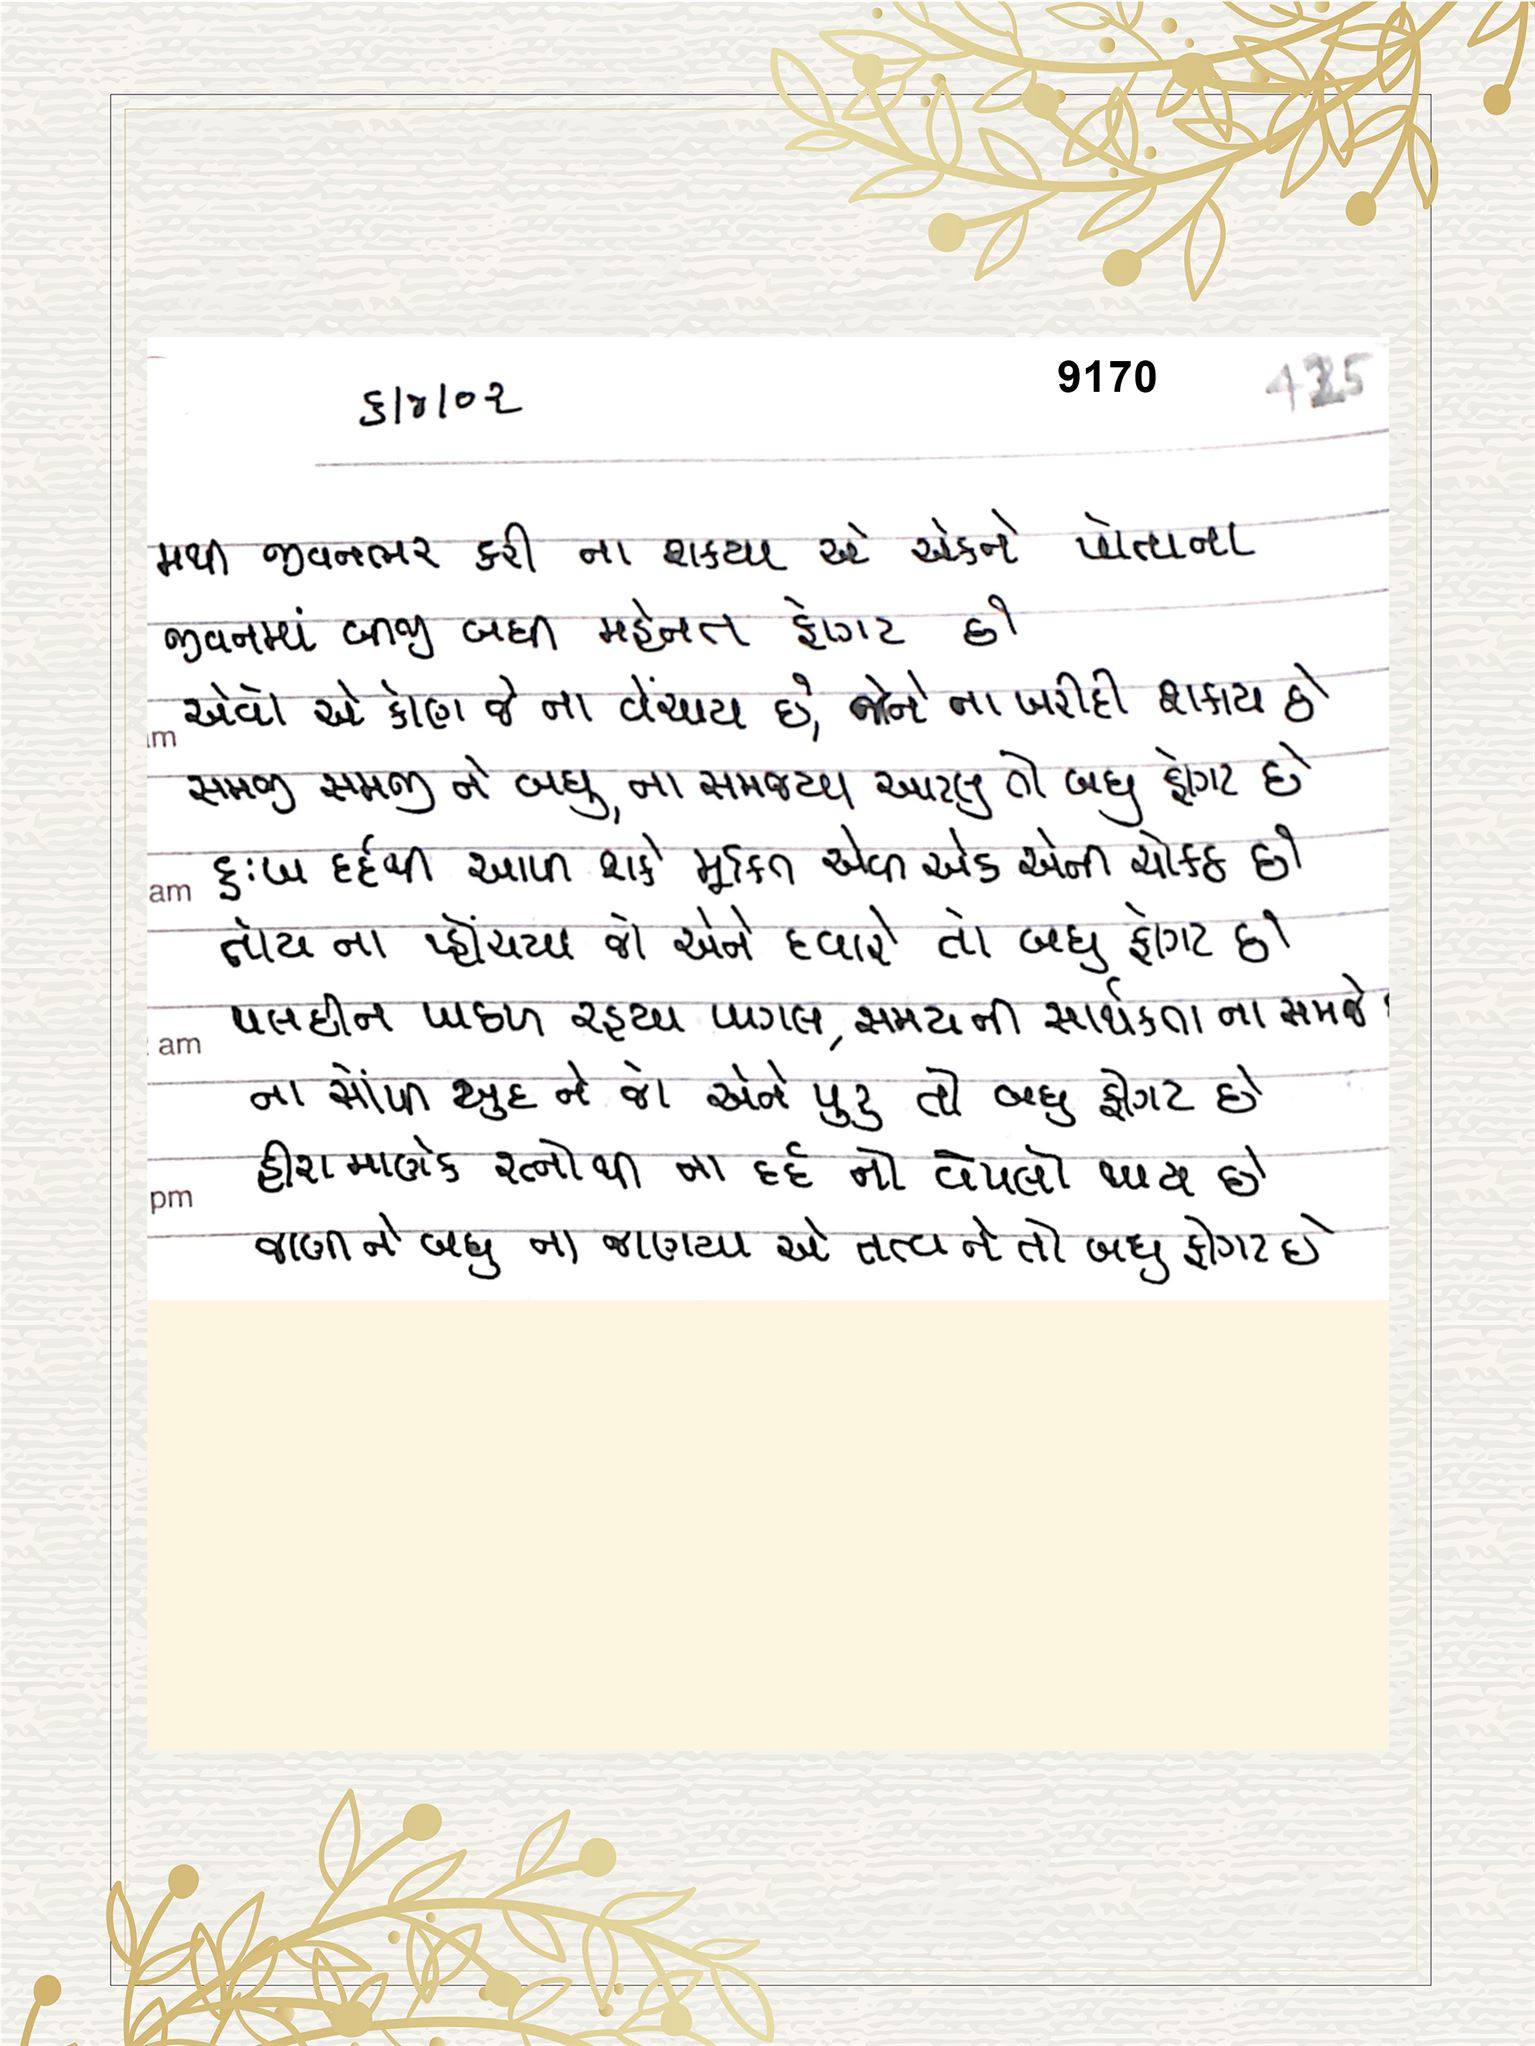 ૬/૪/૦૨
9170
મથી જીવનભર કરી ના શકયા એ એકને પોતાના
જીવનમાં બીજી બધી મહેનત ફોગટ છે
એવો એ કોણ જે ના વેંચાય છે, જેને ના ખરીદી શકાય છે
am
સમજી સમજી ને બધુ, ના સમજયા આટલુ તો બધુ ફોગટ છે
દુઃખ દર્દથી આપી શકે મૂકિત એવી એક એની ચોકઠ છે
am
તોય ના પ્હોંચયા જો એને દવારે તો બધુ ફોગટ છે
પલછીન પાછળ રહયા પાગલ, સમયની સાર્થકતા ના સમજે
am
ના સોંપી ખુદ ને જો એને પુરુ તો બધુ ફોગટ છે
હીરા માણેક રત્નોથી ના દર્દ નો વેપલો થાય છે
pm
જાણીને બધુ ના જાણયા એ તત્વ ને તો બધુ ફોગટ છે